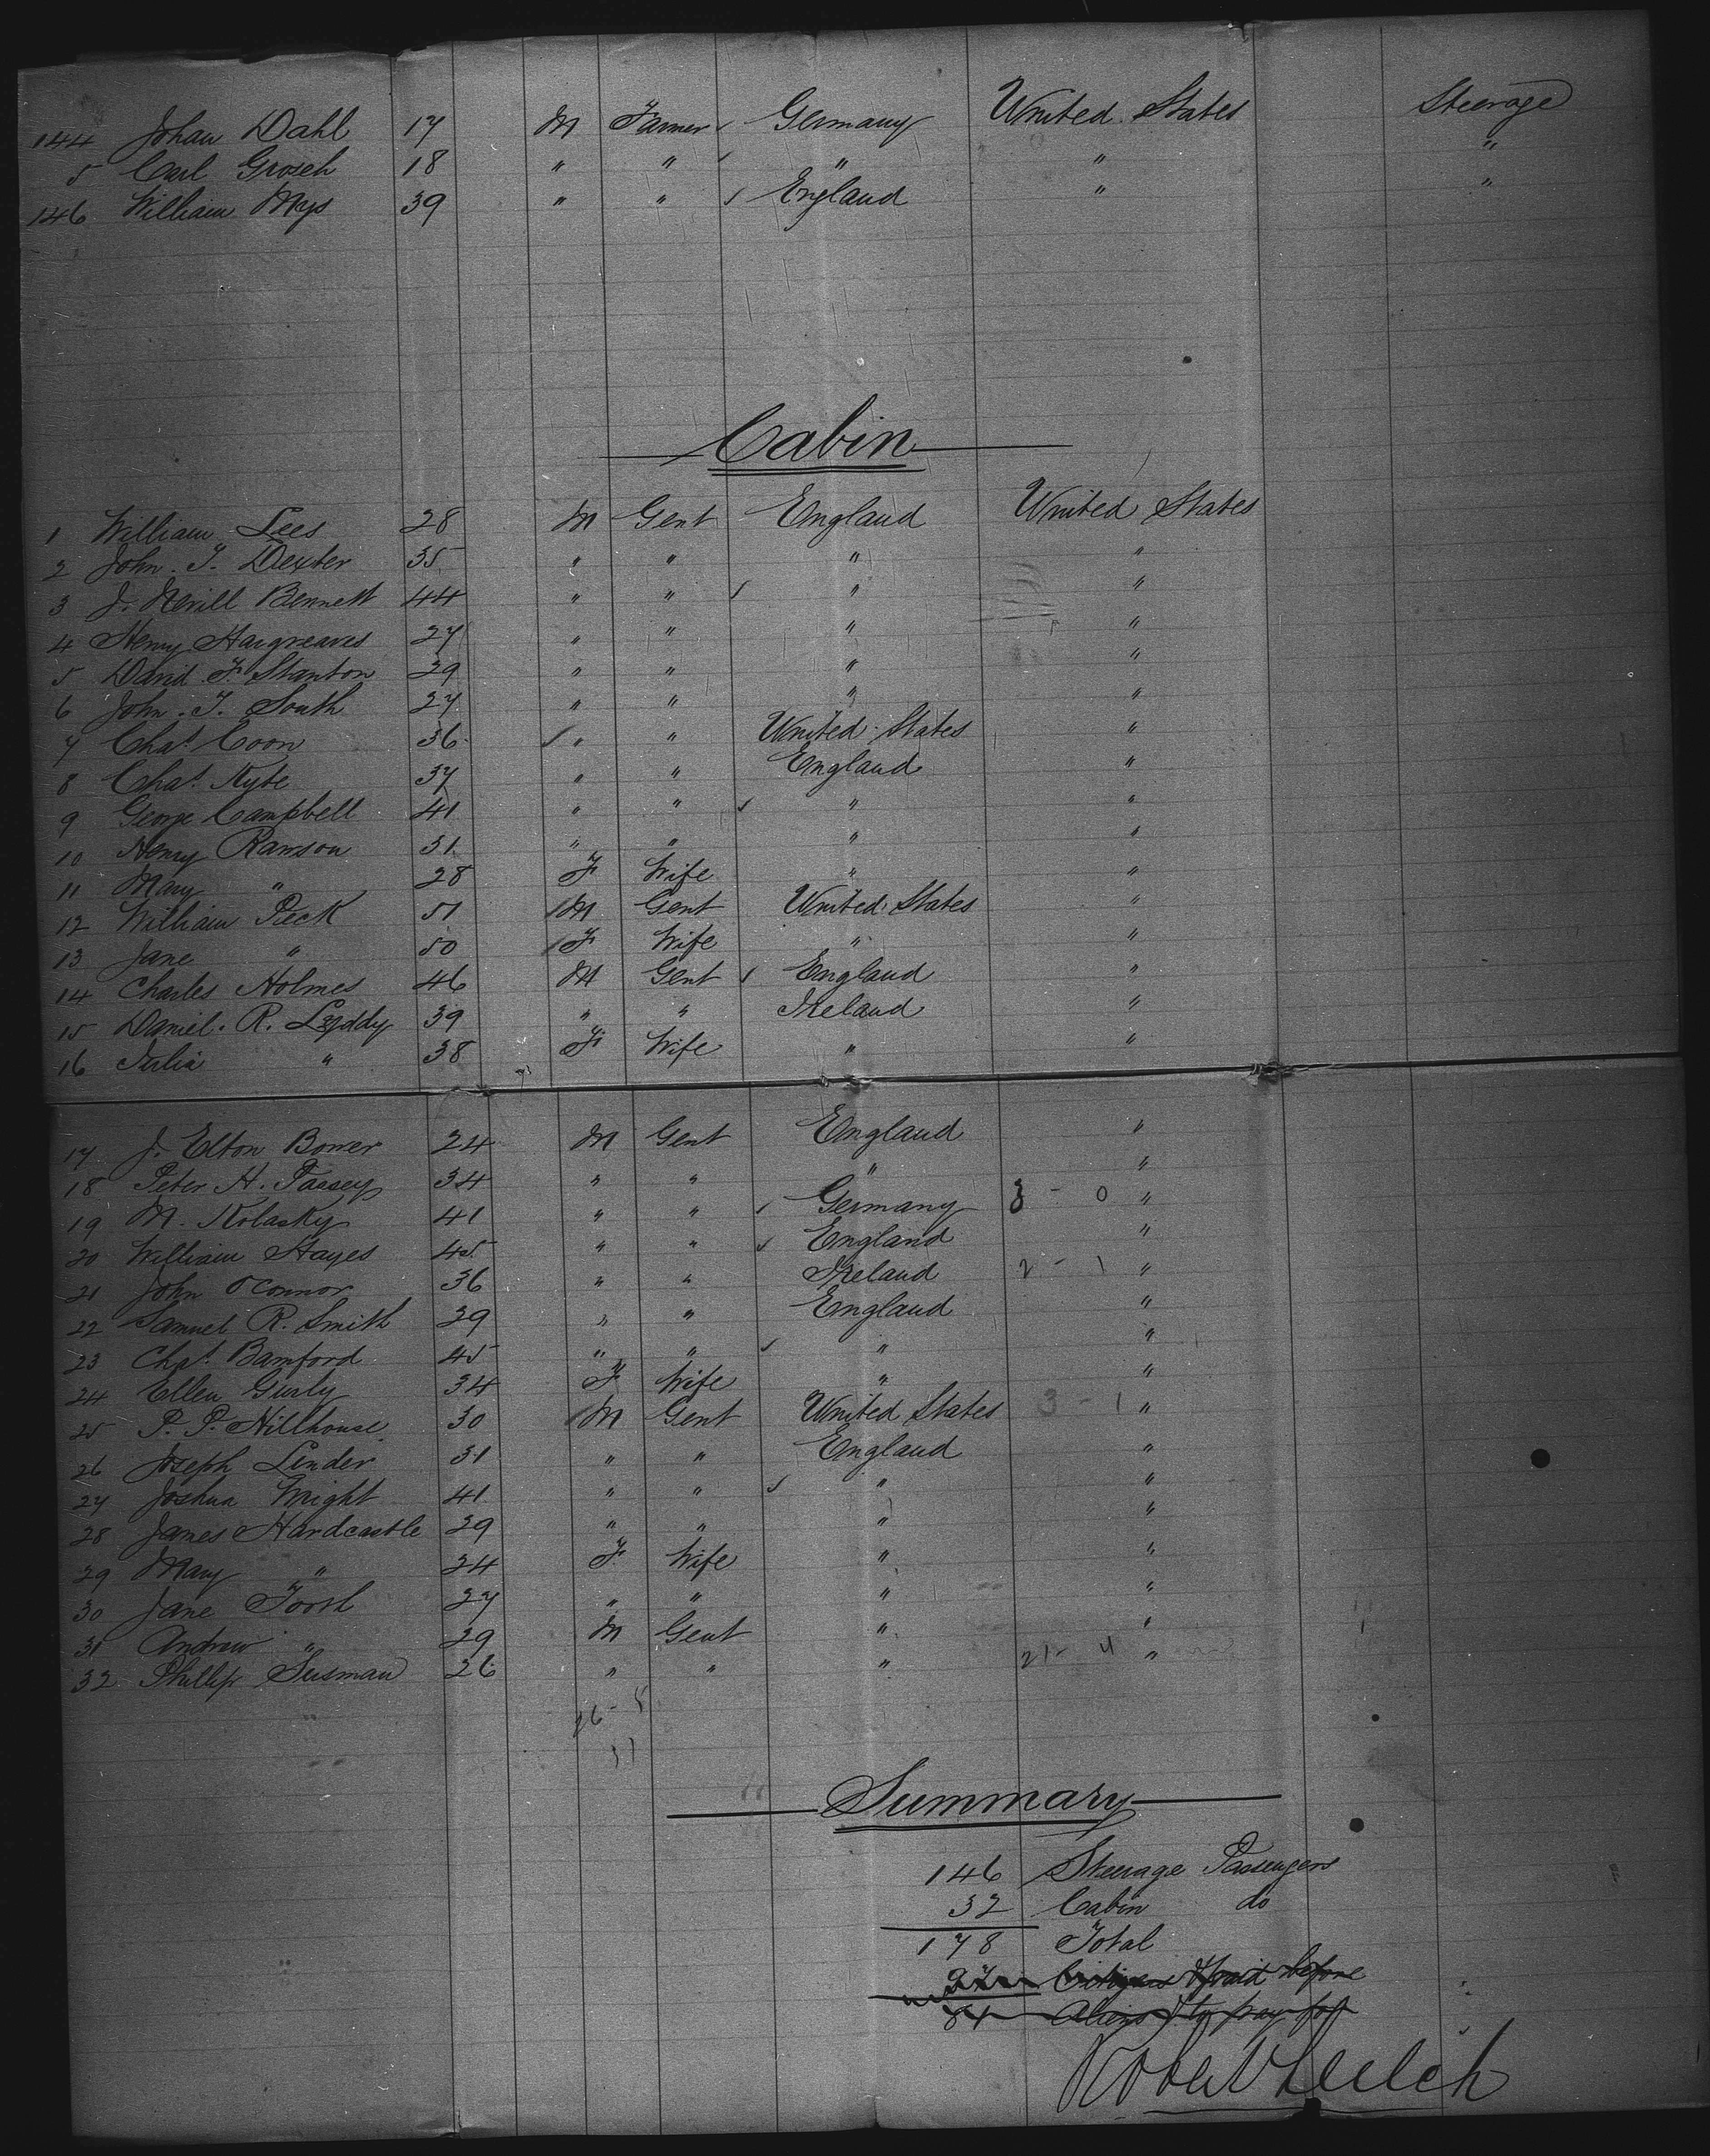 144 Johan Dahl 17 M Farmer Germany United States Steerage
5 Carl Grosch 18 " " " " "
146 William Mys 39 " " England " "
Cabin
1 William Lees 28 M Gent England United States
2 John. T. Dexter 35 " " " "
3 J. Nevill Bennett 44 " " " "
4 Henry Hargreaves 27 " " " "
5 David. F. Stanton 29 " " " "
6 John. T. South 27 " " " "
7 Chas. Coon 36 " " United States "
8 Chas. Kyte 37 " " England "
9 George Campbell 41 " " " "
10 Henry Rawson 31 " " " "
11 Mary " 28 F Wife " "
12 William Peck 51 M Gent United States "
13 Jane " 50 F Wife " "
14 Charles Holmes 46 M Gent England "
15 Daniel. R. Lyddy 39 " " Ireland "
16 Julia " 38 F Wife " "
17 J. Elton Bower 24 M Gent England "
18 Peter H. Passey 34 " " " "
19 M. Kolasky 41 " " Germany 3 - 0 "
20 William Hayes 45 " " England "
21 John O'Connor 36 " " Ireland 2 - 1 "
22 Samuel R. Smith 29 " " England "
23 Chas. Bamford 45 " " " "
24 Ellen Gurly 34 F Wife " "
25 P. P. Hillhouse. 30 M Gent United States 3 - 1 "
26 Joseph Linder 31 " " England "
27 Joshua Wright 41 " " " "
28 James Hardcastle 29 " " " "
29 Mary " 24 F Wife " "
30 Jane 27 " " " "
31 Andrew " 29 M Gent " "
32 Phillip Susman 26 " " " 21 - 4 "
Summary
146 Steerage Passengers
32 Cabin do
178 Total
Citizens & paid before
84 Aliens to pay for